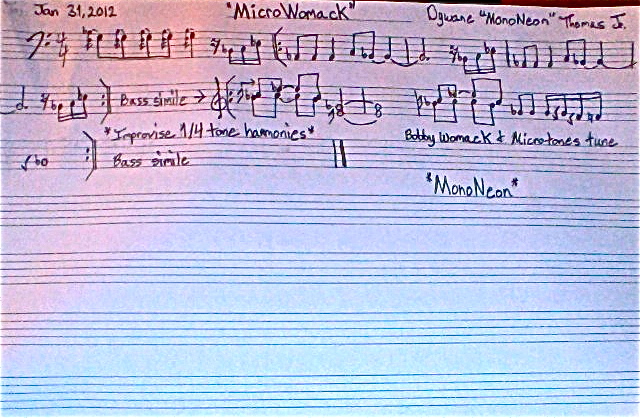 Jan 31, 2012 "MicroWomack" Dywane "MonoNeon" Thomas Jr.
4/4
Bass simile →
*Improvise 1/4 tone harmonies* Bobby Womack & Microtones tune
Bass simile
*MonoNeon*